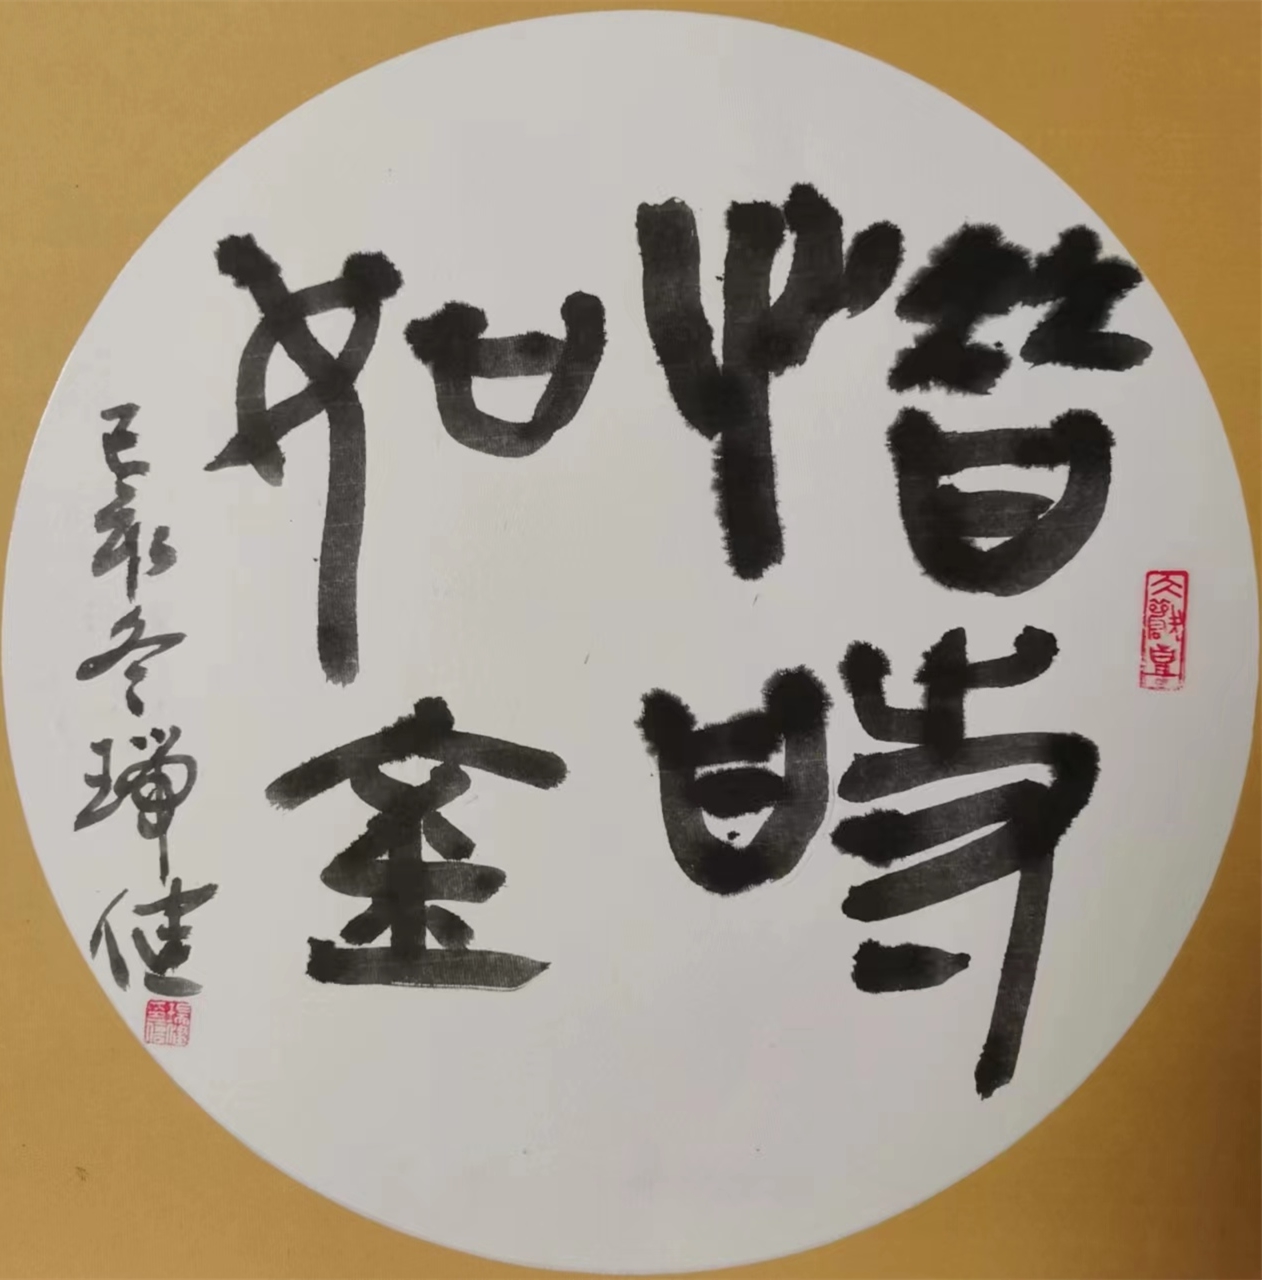 惜時
如金
己亥冬瑞健